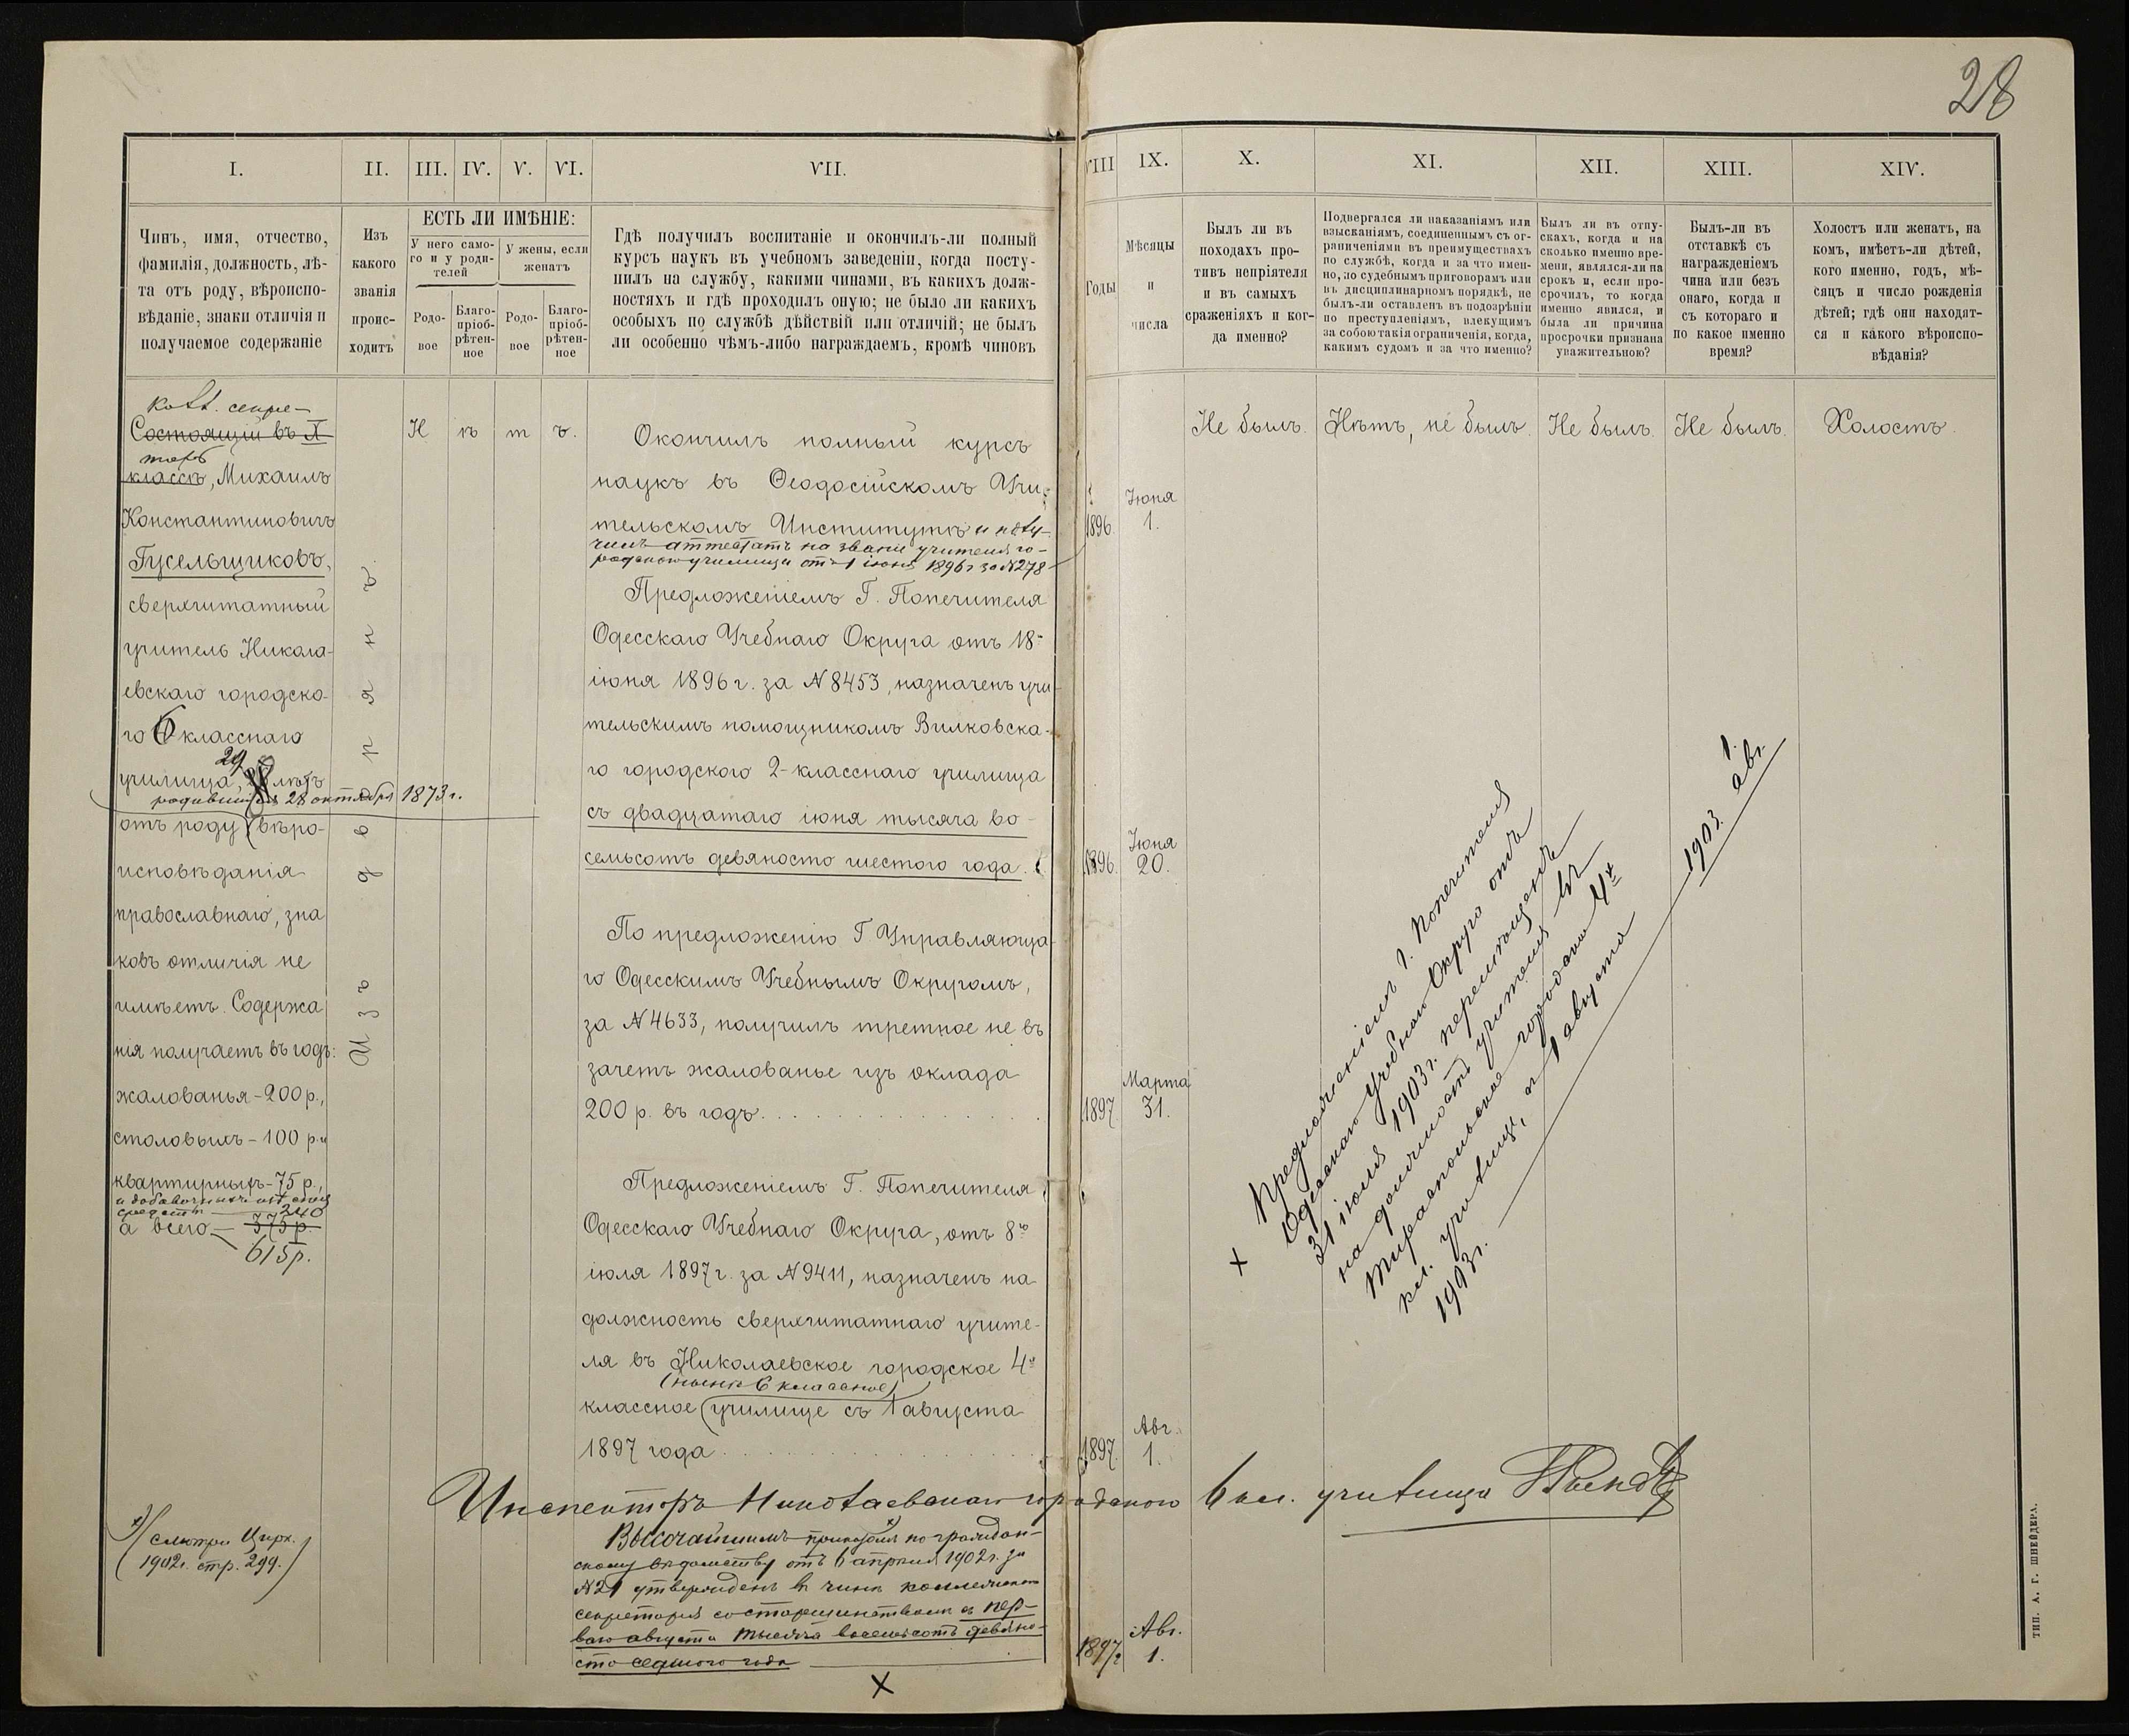 28
I.
II.
III.
IV.
V.
VI.
VII.
VIII
IX.
X.
XI.
XII.
XIII.
XIV.
Чинъ, имя, отчество,
фамилія, должность, лѣ-
та отъ роду, вѣроиспо-
вѣданіе, знаки отличія и
получаемое содержаніе
Изъ
какого
званія
проис-
ходитъ
ЕСТЬ ЛИ ИМѢНІЕ:
У него само-
го и у роди-
телей
У жены, если
женатъ
Родо-
вое
Благо-
пріоб-
рѣтен-
ное
Родо-
вое
Благо-
пріоб-
рѣтен-
ное
Гдѣ получилъ воспитаніе и окончилъ-ли полный
курсъ наукъ въ учебномъ заведеніи, когда посту-
пилъ на службу, какими чинами, въ какихъ долж-
ностяхъ и гдѣ проходилъ оную; не было ли какихъ
особыхъ по службѣ дѣйствій или отличій; не былъ
ли особенно чѣмъ-либо награждаемъ, кромѣ чиновъ
Годы
Мѣсяцы
и
числа
Былъ ли въ
походахъ про-
тивъ непріятеля
и въ самыхъ
сраженіяхъ и ког-
да именно?
Подвергался ли наказаніямъ или
взысканіямъ, соединеннымъ съ ог-
раниченіями въ преимуществахъ
по службѣ, когда и за что имен-
но, по судебнымъ приговорамъ или
въ дисциплинарномъ порядкѣ, не
былъ-ли оставленъ въ подозрѣніи
по преступленіямъ, влекущимъ
за собою такія ограниченія, когда,
какимъ судомъ и за что именно?
Былъ ли въ отпу-
скахъ, когда и на
сколько именно вре-
мени, являлся-ли на
срокъ и, если про-
срочилъ, то когда
именно явился, и
была ли причина
просрочки признана
уважительною?
Былъ-ли въ
отставкѣ съ
награжденіемъ
чина или безъ
онаго, когда и
съ котораго и
по какое именно
время?
Холостъ или женатъ, на
комъ, имѣетъ-ли дѣтей,
кого именно, годъ, мѣ-
сяцъ и число рожденія
дѣтей; гдѣ они находят-
ся и какого вѣроиспо-
вѣданія?
колл. секре-
Состоящій въ X
тарь
классѣ, Михаилъ
Константиновичъ
Гусельщиковъ,
сверхштатный
учитель Никола-
евскаго городско-
го 6 класснаго
29
училища, лѣтъ
родившійся 28 октября 1873 г.
отъ роду (вѣро-
исповѣданія
православнаго, зна
ковъ отличія не
имѣетъ. Содержа
нія получаетъ въ годъ:
жалованья - 200 р.,
столовыхъ - 100 р. и
квартирныхъ - 75 р.,
и добавочныхъ изъ спец
средствъ — 240
а всего — 375 р.
615 р.
Изъ дворянъ.
Н ѣ т ъ.
Окончилъ полный курсъ
наукъ въ Ѳеодосійскомъ Учи-
тельскомъ Институтѣ и полу-
чилъ аттестатъ на званіе учителя го-
родского училища отъ 1 іюня 1896 г за № 278
1896.
Іюня
1.
Предложеніемъ Г. Попечителя
Одесскаго Учебнаго Округа отъ 18-
іюня 1896 г. за № 8453, назначенъ учи-
тельскимъ помощникомъ Вилковска-
го городского 2-класснаго училища
съ двадцатаго іюня тысяча во-
семьсотъ девяносто шестого года.
1896.
Іюня
20.
По предложенію Г Управляюща-
го Одесскимъ Учебнымъ Округомъ,
за № 4633, получилъ третное не въ
зачетъ жалованье изъ оклада
200 р. въ годъ
1897.
Марта
31.
Предложеніемъ Г. Попечителя
Одесскаго Учебнаго Округа, отъ 8го
іюля 1897 г. за № 9411, назначенъ на
должность сверхштатнаго учите-
ля въ Николаевское городское 4х
(нынѣ 6 классное)
классное училище съ 1 августа
1897 года
1897.
Авг.
1.
Не былъ.
Нѣтъ, не былъ.
Не былъ.
Не былъ.
Холостъ.
× Предложеніемъ г. Попечителя
Одесскаго Учебнаго Округа отъ
31 іюля 1903 г. перемѣщенъ
на должность учителя въ
Тираспольское городское 4х
кл. училище, съ 1 августа
1903 г. — 1903. 1. авг.
Инспекторъ Николаевскаго городского 6 кл. училища
х) (смотри Цирк.
1902 г. стр. 299.)
Высочайшимъ приказомъ х) по граждан-
скому вѣдомству отъ 6 апрѣля 1902 г. за
№ 21 утвержденъ въ чинѣ коллежскаго
секретаря со старшинствомъ съ пер-
ваго августа тысяча восемьсотъ девяно-
сто седьмого года
1897 г.
Авг.
1.
×
ТИП. А. Г. ШНЕЙДЕРА.